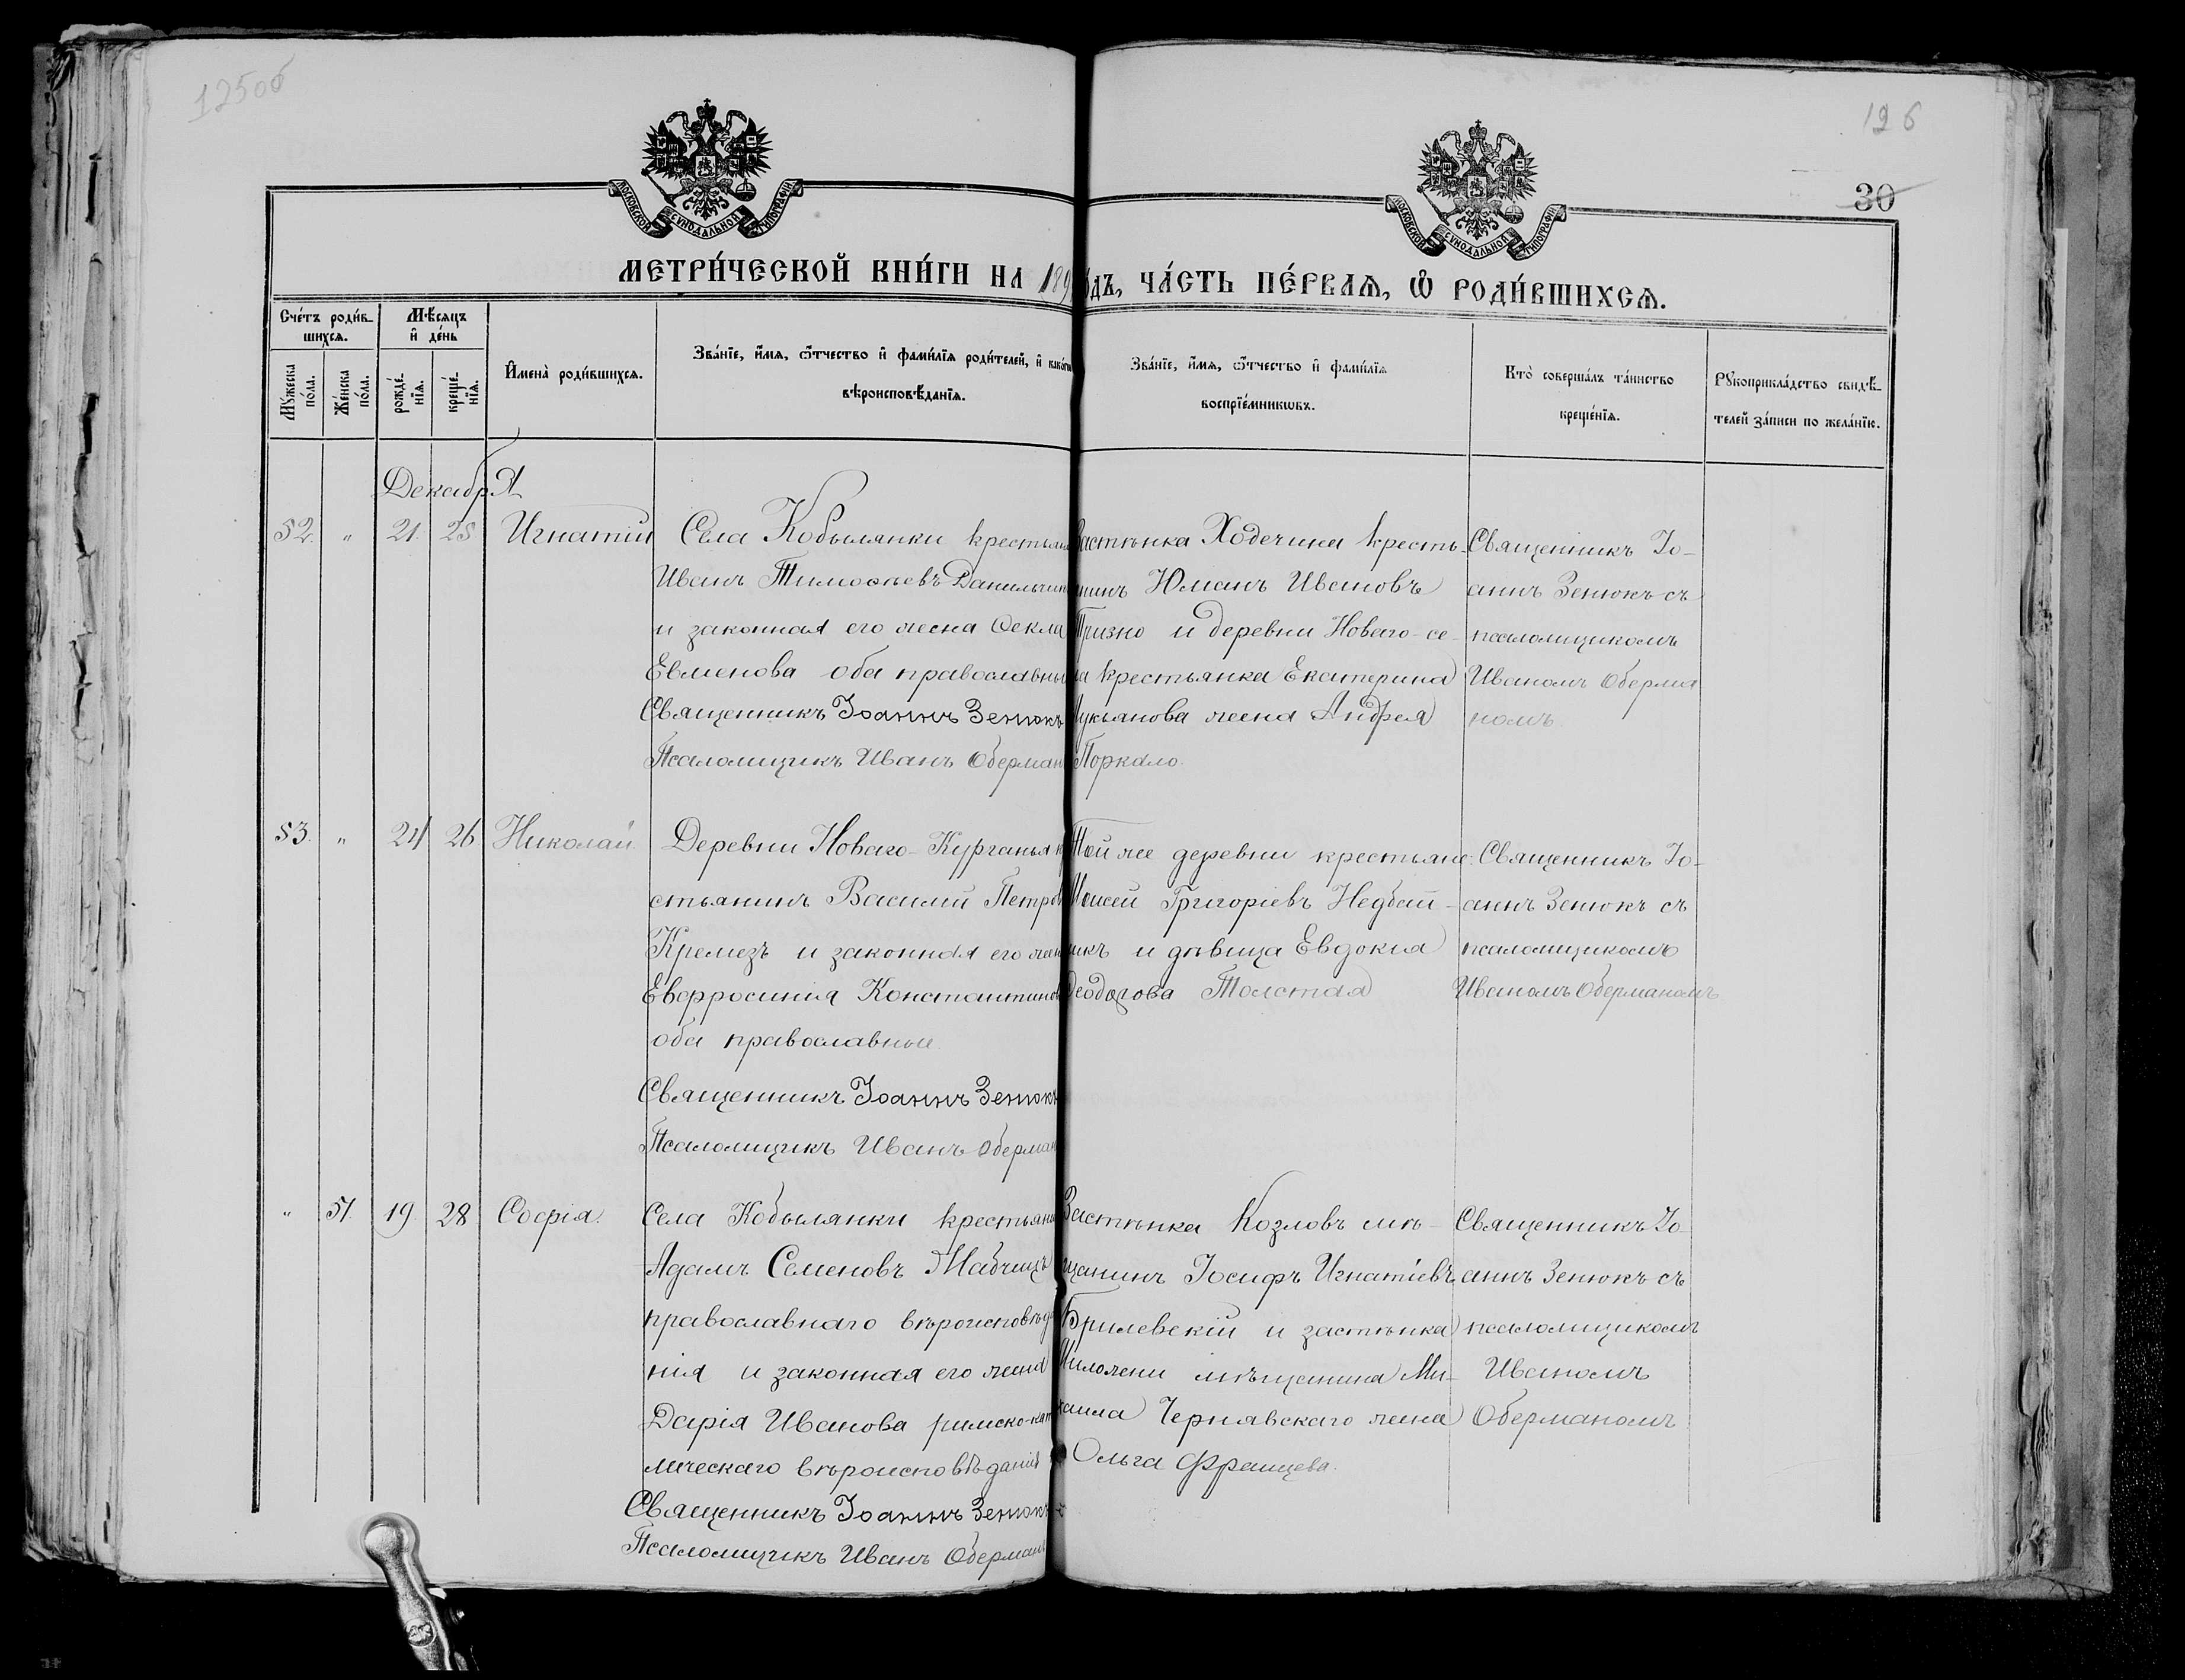 125об
126
30
МОСКОВСКОЙ СУНОДАЛЬНОЙ ТИПОГРАФІИ
МОСКОВСКОЙ СУНОДАЛЬНОЙ ТИПОГРАФІИ
МЕТРИ́ЧЕСКОЙ КНИ́ГИ НА 189
о́дъ, ЧА́СТЬ ПЕ́РВАѦ, Ѡ҆ РОДИ́ВШИХСѦ.
Сче́тъ роди́в-
шихсѧ.
Мѣ́сяцъ
и҆ де́нь
Мꙋ́жеска
по́ла.
Же́нска
по́ла.
рожде́-
нїѧ.
креще́-
нїѧ.
И҆мена̀ роди́вшихсѧ.
Зва́нїе, и҆́мѧ, ѻ҆́тчество и҆ фами́лїѧ роди́телей, и҆ како́гѡ
вѣроисповѣ́данїѧ.
Зва́нїе, и҆́мѧ, ѻ҆́тчество и҆ фами́лїѧ
воспрїе́мникѡвъ.
Кто̀ соверша́лъ та́инство
креще́нїѧ.
Рꙋкоприкла́дство свидѣ́-
телей за́писи по жела́нїю.
Декабря
52. " 21. 25 Игнатій
Села Кобылянки крестьян
Иванъ Тимоѳеевъ Данильчик
и законная его жена Ѳекла
Евменова оба православны
Священникъ Іоаннъ Зенюкъ
Псаломщикъ Иванъ Оберман
Застѣнка Ходечина кресть-
янинъ Юманъ Ивановъ
Призно и деревни Новаго-се-
ла крестьянка Екатерина
Лукьянова жена Андрея
Поркало.
Священникъ Іо-
аннъ Зенюкъ съ
псаломщикомъ
Иваномъ Оберма
номъ
53. " 24 26. Николай
Деревни Новаго-Курганья кр
стьянинъ Василій Петров
Кремезъ и законная его жен
Евфросинія Константинов
оба православные.
Священникъ Іоаннъ Зенюкъ
Псаломщикъ Иванъ Оберман
Той же деревни крестьяне:
Моисей Григоріевъ Недбай-
икъ и дѣвица Евдокія
Ѳеодорова Толстая
Священникъ Іо-
аннъ Зенюкъ съ
псаломщикомъ
Иваномъ Оберманомъ
" 51. 19. 28 Софія.
Села Кобылянки крестьяни
Адамъ Семеновъ
православнаго вѣроисповѣда
нія и законная его жена
Дарія Иванова римско-кат
лическаго вѣроисповѣданія
Священникъ Іоаннъ Зенюкъ
Псаломщикъ Иванъ Оберман
Застѣнка Козловъ мѣ-
щанинъ Іосифъ Игнатіевъ
Брилевскій и застѣнка
мѣщанина Ми-
хаила Чернявскаго жена
Ольга Францева.
Священникъ Іо
аннъ Зенюкъ съ
псаломщикомъ
Иваномъ
Оберманомъ